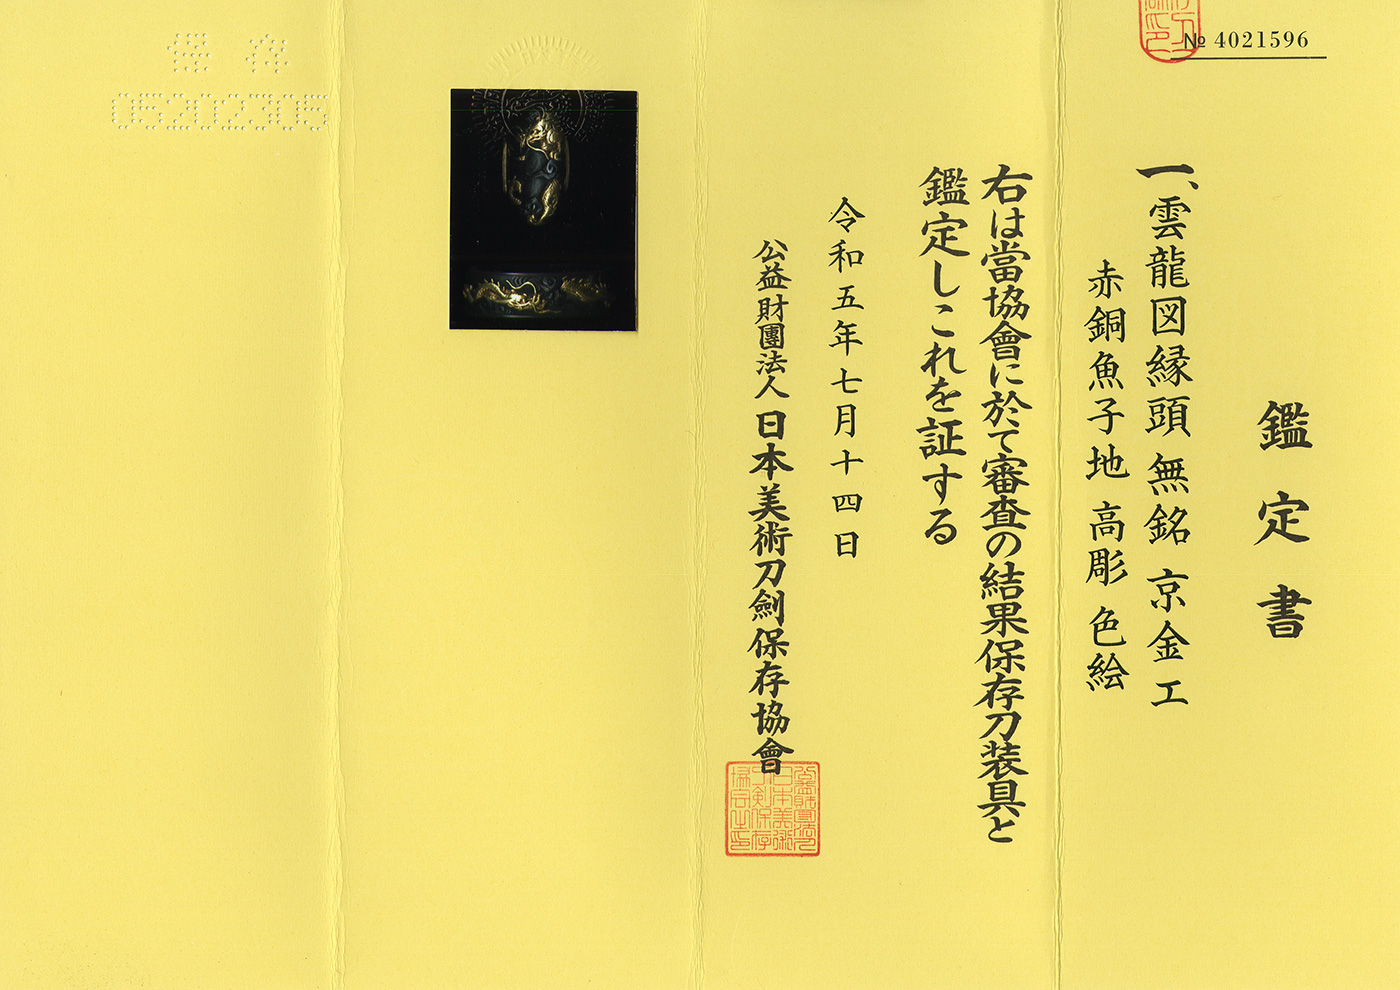 № 4021596
鑑定書
一、雲龍図縁頭 無銘 京金工
赤銅魚子地 高彫 色絵
右は當協會に於て審査の結果保存刀装具と
鑑定しこれを証する
令和五年七月十四日
公益財團法人 日本美術刀劍保存協會
保存
05202305